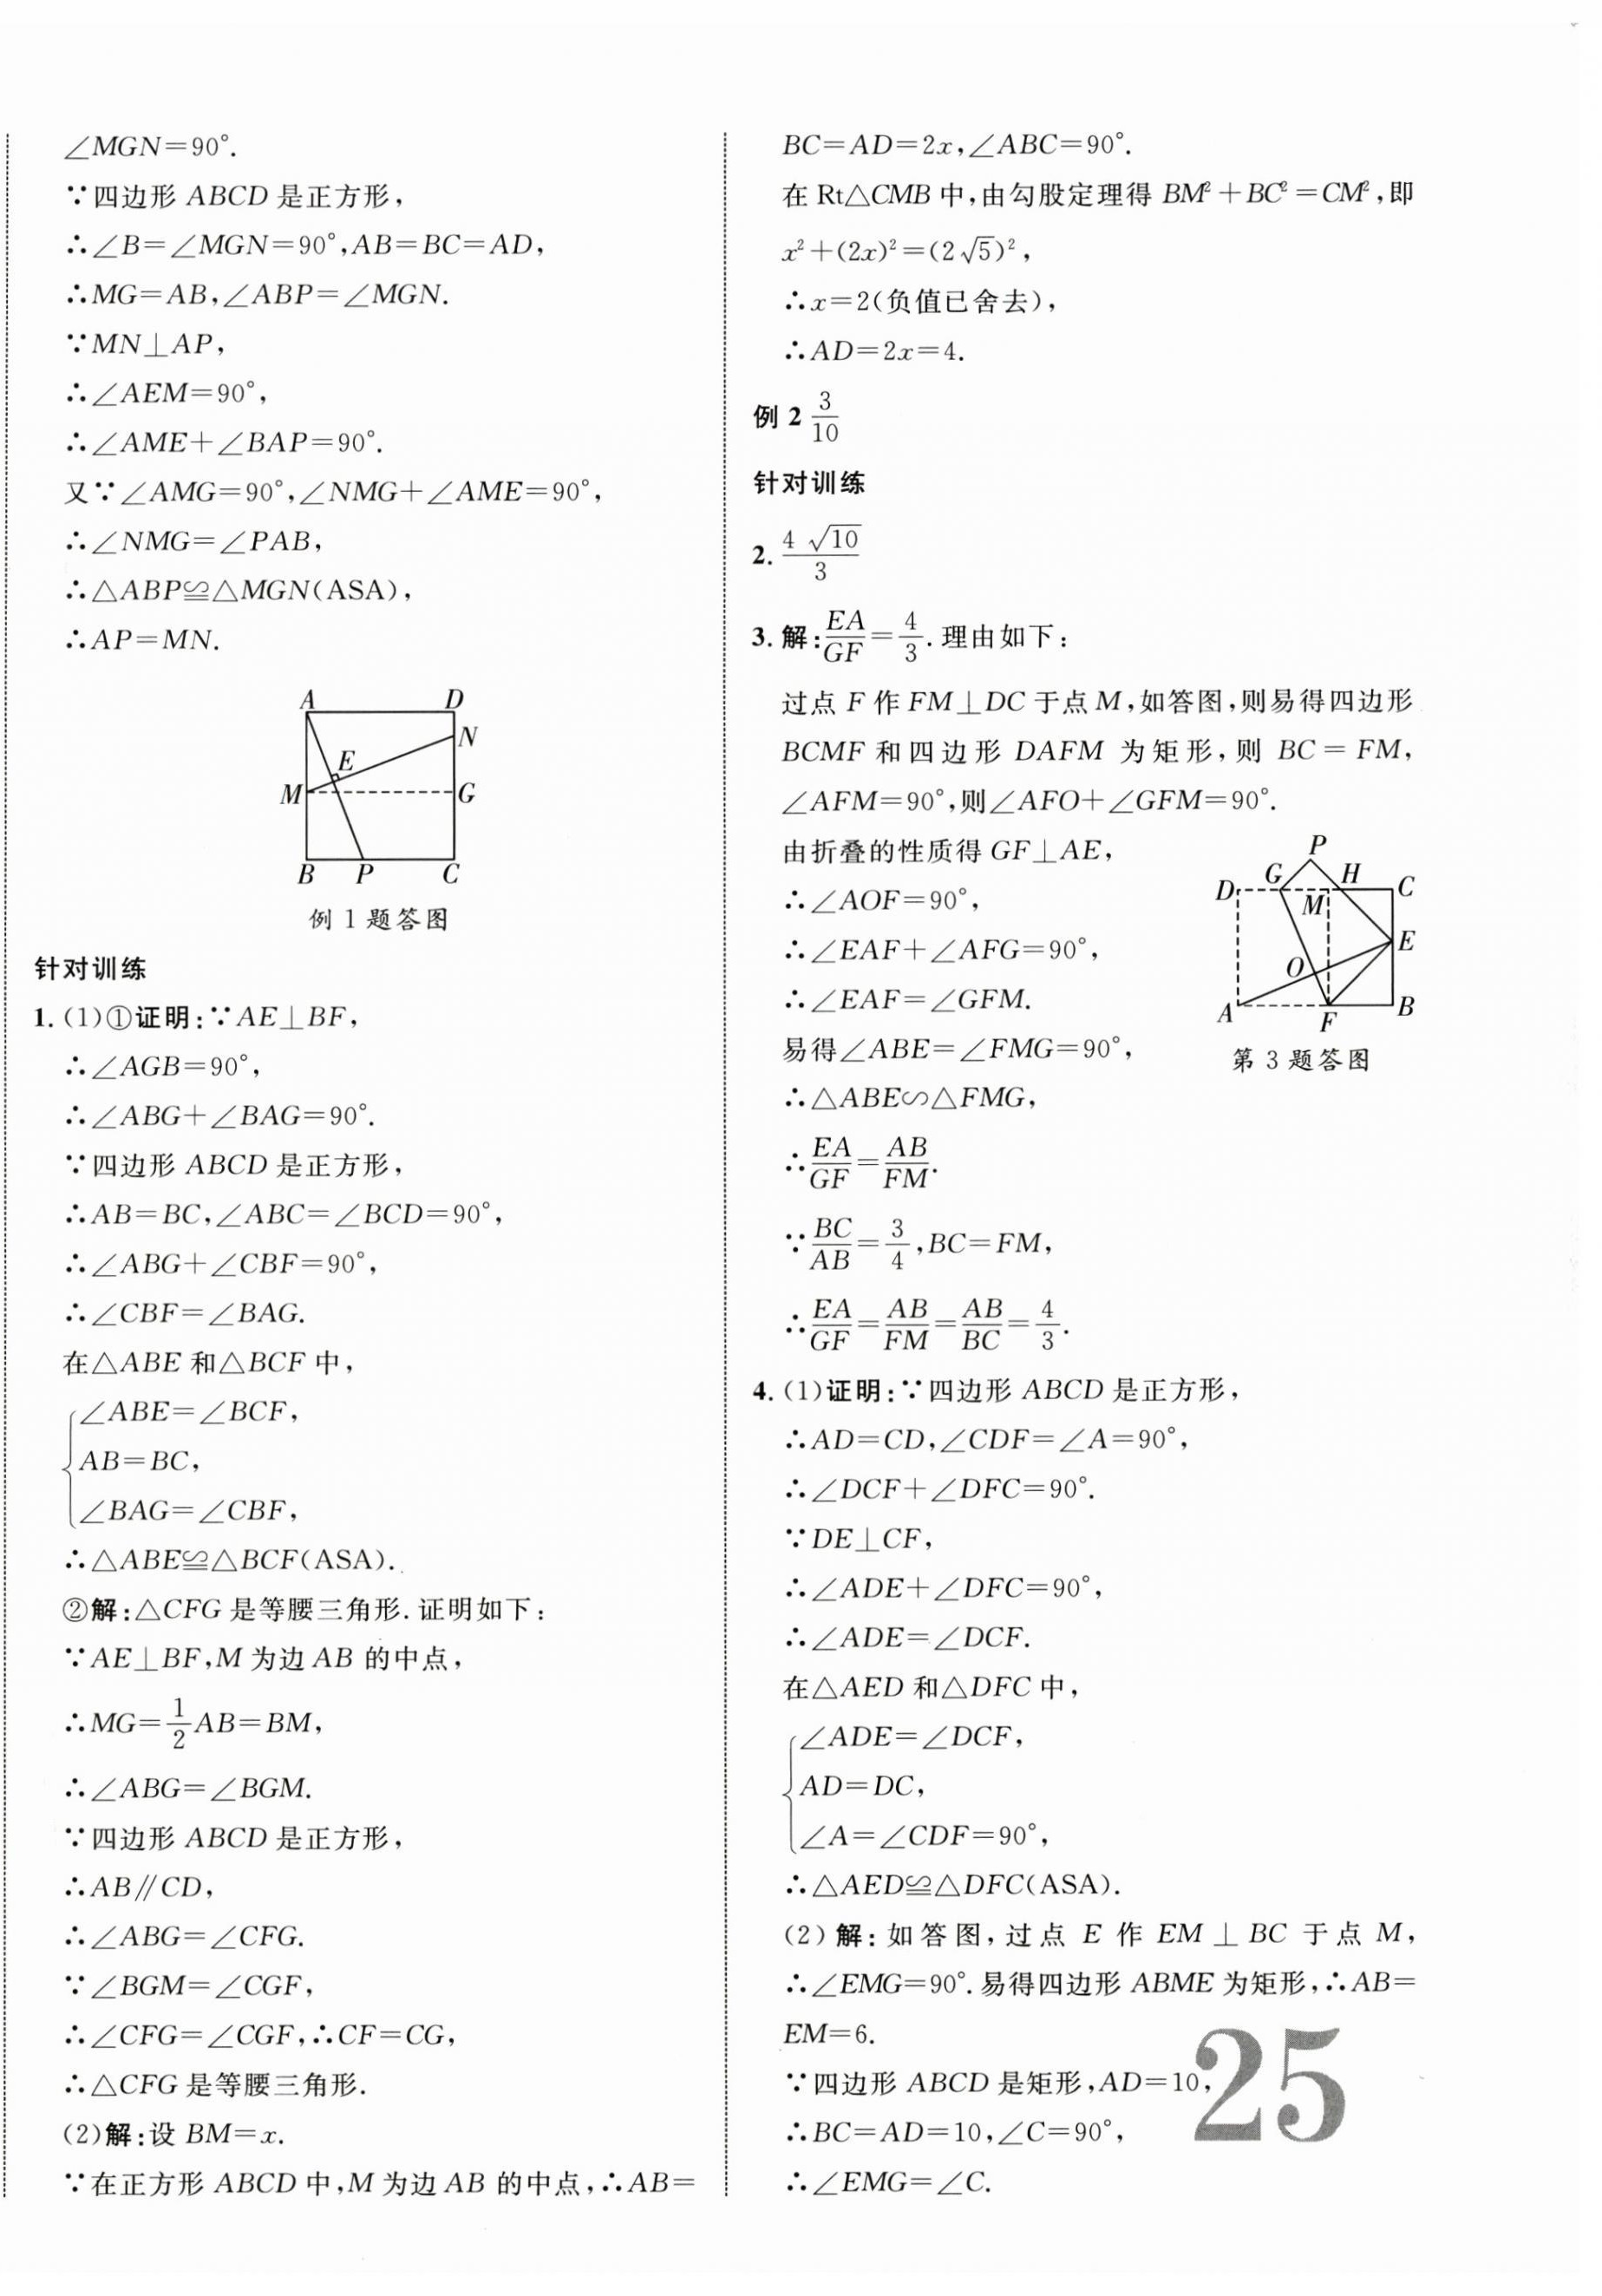 ∠MGN=90°.
∵四边形 ABCD 是正方形，
∴∠B=∠MGN=90°,AB=BC=AD,
∴MG=AB,∠ABP=∠MGN.
∵MN⊥AP,
∴∠AEM=90°,
∴∠AME+∠BAP=90°.
又∵∠AMG=90°,∠NMG+∠AME=90°,
∴∠NMG=∠PAB,
∴△ABP≌△MGN(ASA),
∴AP=MN.
A D
N
E
M G
B P C
例 1 题答图
针对训练
1.(1)①证明:∵AE⊥BF,
∴∠AGB=90°,
∴∠ABG+∠BAG=90°.
∵四边形 ABCD 是正方形，
∴AB=BC,∠ABC=∠BCD=90°,
∴∠ABG+∠CBF=90°,
∴∠CBF=∠BAG.
在△ABE 和△BCF 中，
∠ABE=∠BCF,
AB=BC,
∠BAG=∠CBF,
∴△ABE≌△BCF(ASA).
②解:△CFG 是等腰三角形.证明如下:
∵AE⊥BF,M 为边 AB 的中点，
∴MG=1/2AB=BM,
∴∠ABG=∠BGM.
∵四边形 ABCD 是正方形，
∴AB∥CD,
∴∠ABG=∠CFG.
∵∠BGM=∠CGF,
∴∠CFG=∠CGF,∴CF=CG,
∴△CFG 是等腰三角形.
(2)解:设 BM=x.
∵在正方形 ABCD 中,M 为边 AB 的中点,∴AB=
BC=AD=2x,∠ABC=90°.
在 Rt△CMB 中,由勾股定理得 BM²+BC²=CM²,即
x²+(2x)²=(2√5)²,
∴x=2(负值已舍去),
∴AD=2x=4.
例 2 3/10
针对训练
2. 4√10/3
3. 解:EA/GF=4/3.理由如下:
过点 F 作 FM⊥DC 于点 M,如答图,则易得四边形
BCMF 和四边形 DAFM 为矩形,则 BC=FM,
∠AFM=90°,则∠AFO+∠GFM=90°.
由折叠的性质得 GF⊥AE,
∴∠AOF=90°,
∴∠EAF+∠AFG=90°,
∴∠EAF=∠GFM.
易得∠ABE=∠FMG=90°,
∴△ABE∽△FMG,
∴EA/GF=AB/FM.
∵BC/AB=3/4,BC=FM,
∴EA/GF=AB/FM=AB/BC=4/3.
P
D G H C
M
E
O
A F B
第 3 题答图
4.(1)证明:∵四边形 ABCD 是正方形，
∴AD=CD,∠CDF=∠A=90°,
∴∠DCF+∠DFC=90°.
∵DE⊥CF,
∴∠ADE+∠DFC=90°,
∴∠ADE=∠DCF.
在△AED 和△DFC 中，
∠ADE=∠DCF,
AD=DC,
∠A=∠CDF=90°,
∴△AED≌△DFC(ASA).
(2)解:如答图,过点 E 作 EM⊥BC 于点 M,
∴∠EMG=90°.易得四边形 ABME 为矩形,∴AB=
EM=6.
∵四边形 ABCD 是矩形,AD=10,
∴BC=AD=10,∠C=90°,
∴∠EMG=∠C.
25